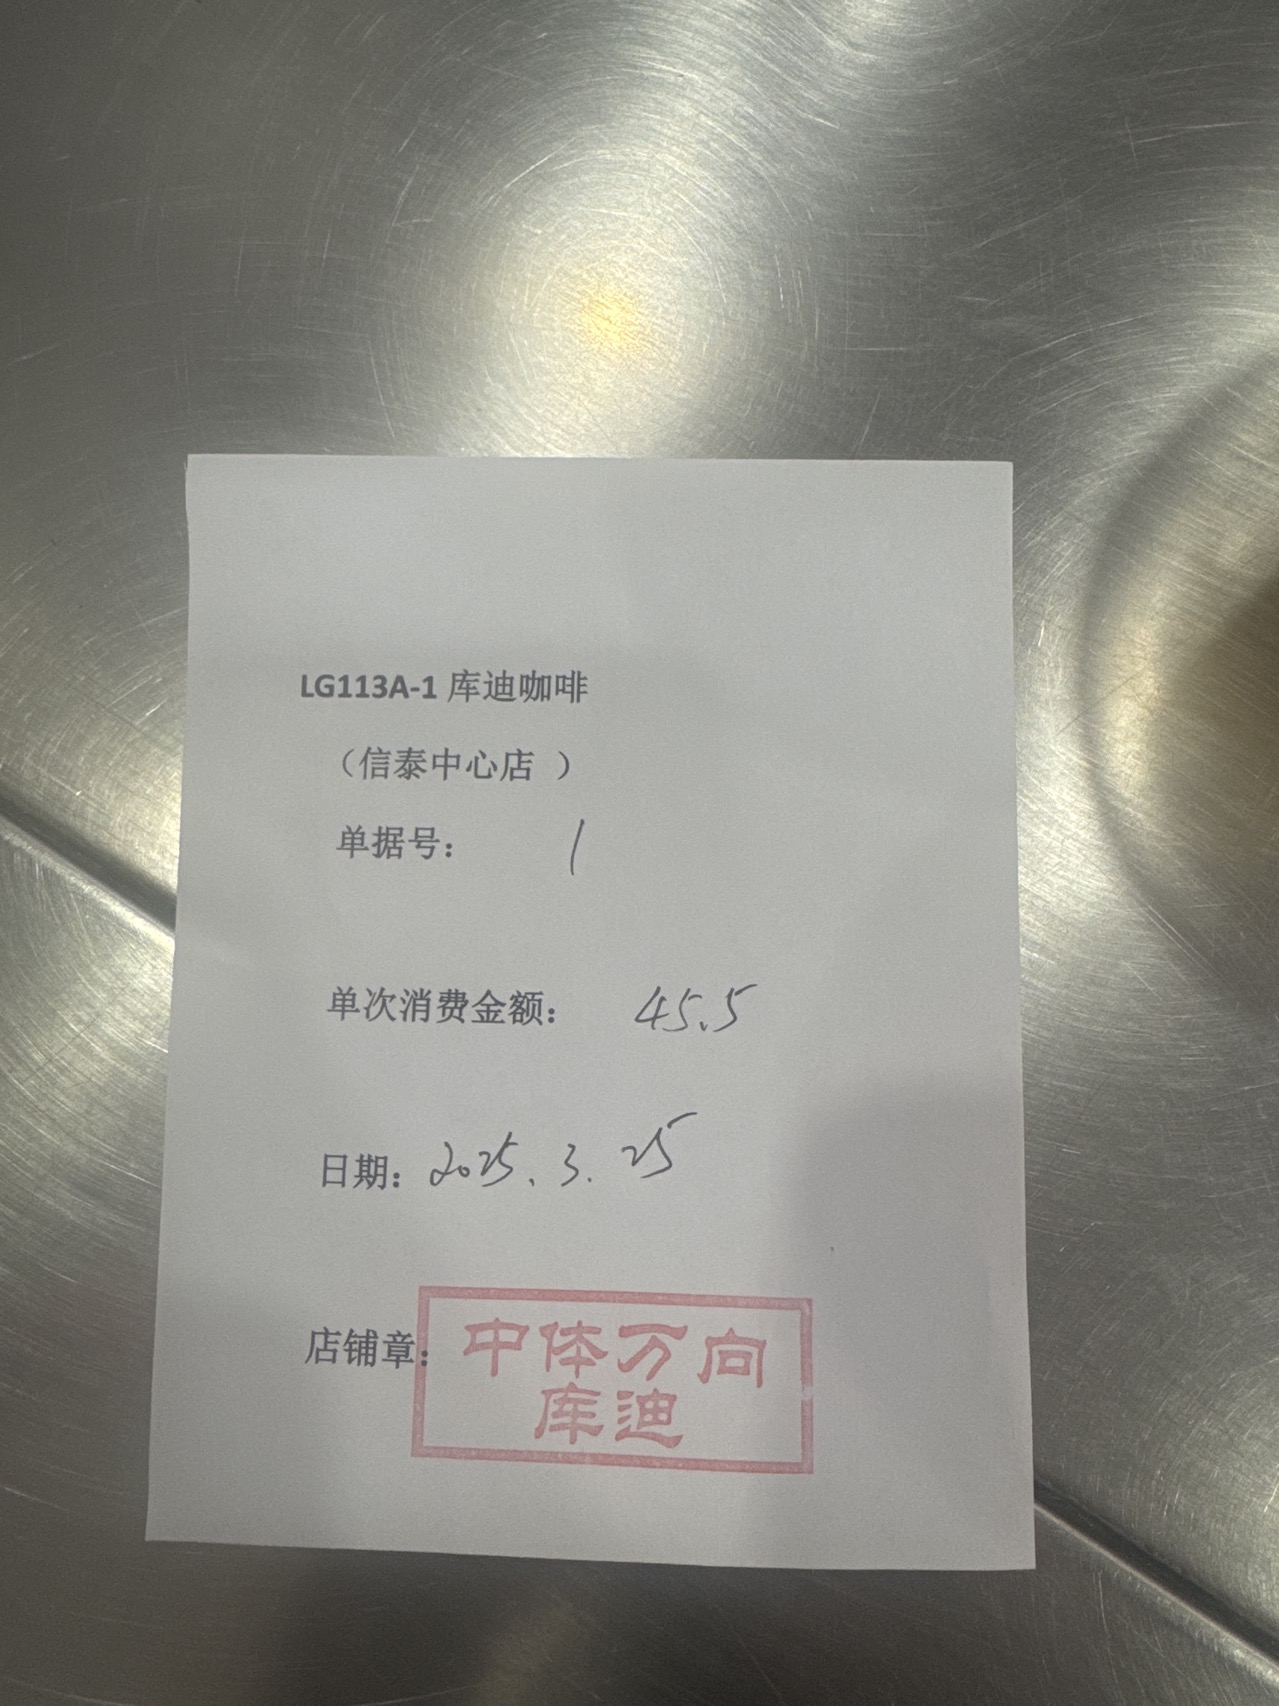 LG113A-1 库迪咖啡
（信泰中心店 ）
单据号： 1
单次消费金额： 45.5
日期：2025.3.25
店铺章：
中体万向
库迪